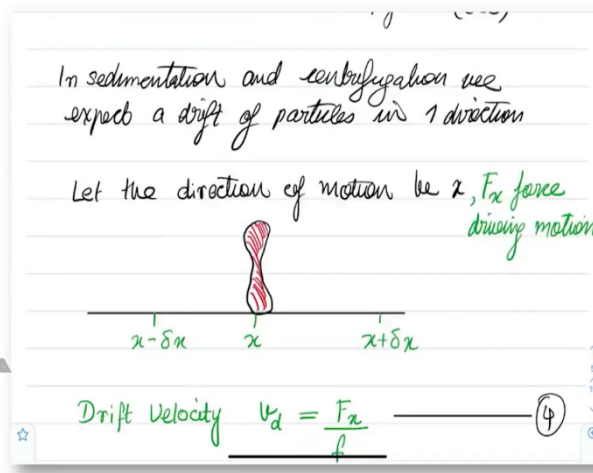 In sedimentation and centrifugation we
expect a drift of particles in 1 direction
Let the direction of motion be x, Fx force
driving motion
x-δx x x+δx
Drift Velocity vd = Fx/f ④